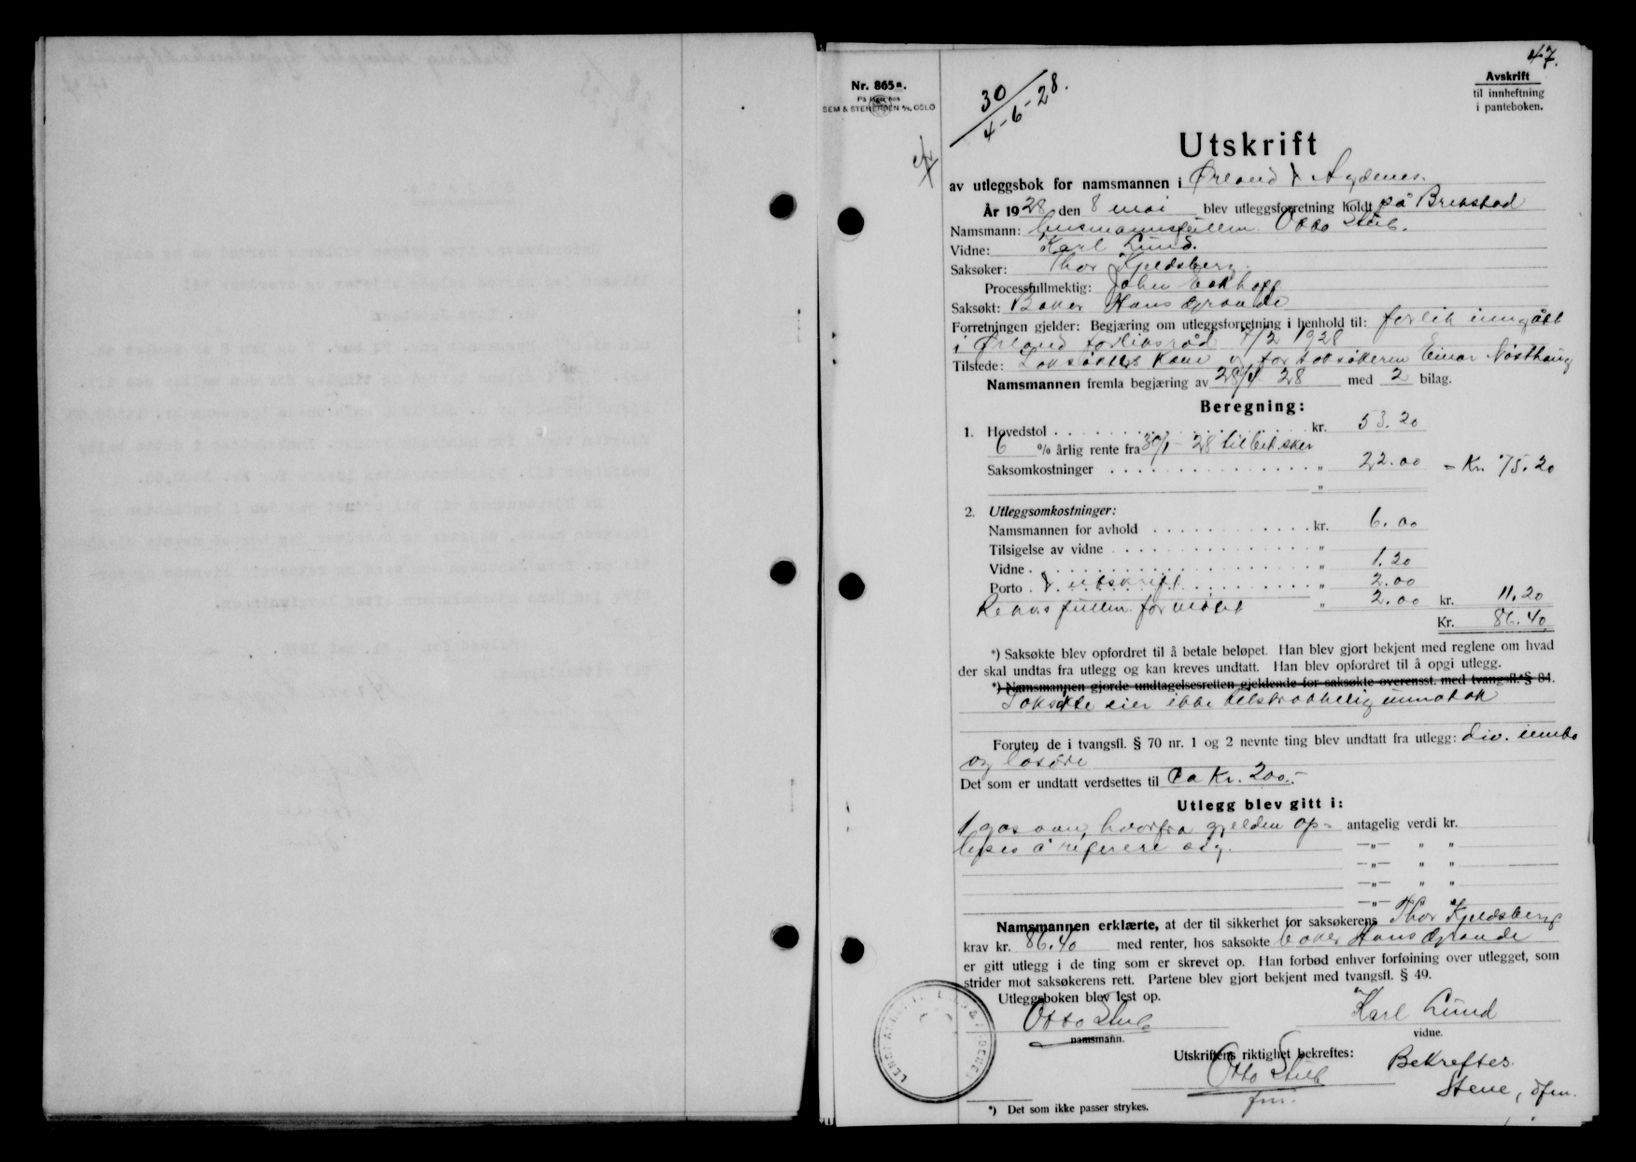 47.
Avskrift
til innheftning
i panteboken.
Nr. 865a.
På lager hos
SEM & STENERSEN A/S, OSLO
30/4-6-28.
Utskrift
av utleggsbok for namsmannen i Ørland & Agdenes.
År 1928 den 8 mai blev utleggsforretning holdt på Brekstad
Namsmann: lensmannsfullm. Otto Stub.
Vidne: Karl Lund.
Saksøker: Thor Kjeldsberg.
Processfullmektig: Johen Eckhoff
Saksøkt: Baker Hans Grande
Forretningen gjelder: Begjæring om utleggsforretning i henhold til: forlik inngått
i Ørland forliksråd 7/2 1928
Tilstede: Saksøktes kone og for saksøkeren Einar Nosthaug
Namsmannen fremla begjæring av 28/4 28 med 2 bilag.
Beregning:
1. Hovedstol kr. 53.20
6 % årlig rente fra 30/1-28 til bet. sker
Saksomkostninger „ 22.00 = Kr. 75.20
„
2. Utleggsomkostninger:
Namsmannen for avhold kr. 6.00
Tilsigelse av vidne „
Vidne „ 1.20
Porto & utskrift „ 2.00
Rekvs fullm. for møtet „ 2.00 kr. 11.20
Kr. 86.40
*) Saksøkte blev opfordret til å betale beløpet. Han blev gjort bekjent med reglene om hvad
der skal undtas fra utlegg og kan kreves undtatt. Han blev opfordret til å opgi utlegg.
*) Namsmannen gjorde undtagelsesretten gjeldende for saksøkte overensst. med tvangsfl.s § 84.
Saksøkte eier ikke tilstrekkelig innatak
Foruten de i tvangsfl. § 70 nr. 1 og 2 nevnte ting blev undtatt fra utlegg: div. innbo
og løsøre
Det som er undtatt verdsettes til ca Kr. 200.-
Utlegg blev gitt i:
1 gasovn, hvorfra gjelden op- antagelig verdi kr.
lyses å referere seg. —„— „ „
—„— „ „
—„— „ „
—„— „ „
Namsmannen erklærte, at der til sikkerhet for saksøkerens Thor Kjeldsberg
krav kr. 86.40 med renter, hos saksøkte baker Hans Grande
er gitt utlegg i de ting som er skrevet op. Han forbød enhver forføining over utlegget, som
strider mot saksøkerens rett. Partene blev gjort bekjent med tvangsfl. § 49.
Utleggsboken blev lest op.
Otto Stub Karl Lund
namsmann. vidne.
Utskriftens riktighet bekreftes: Bekreftes
Otto Stub Stene, dfm.
fm.
*) Det som ikke passer strykes.